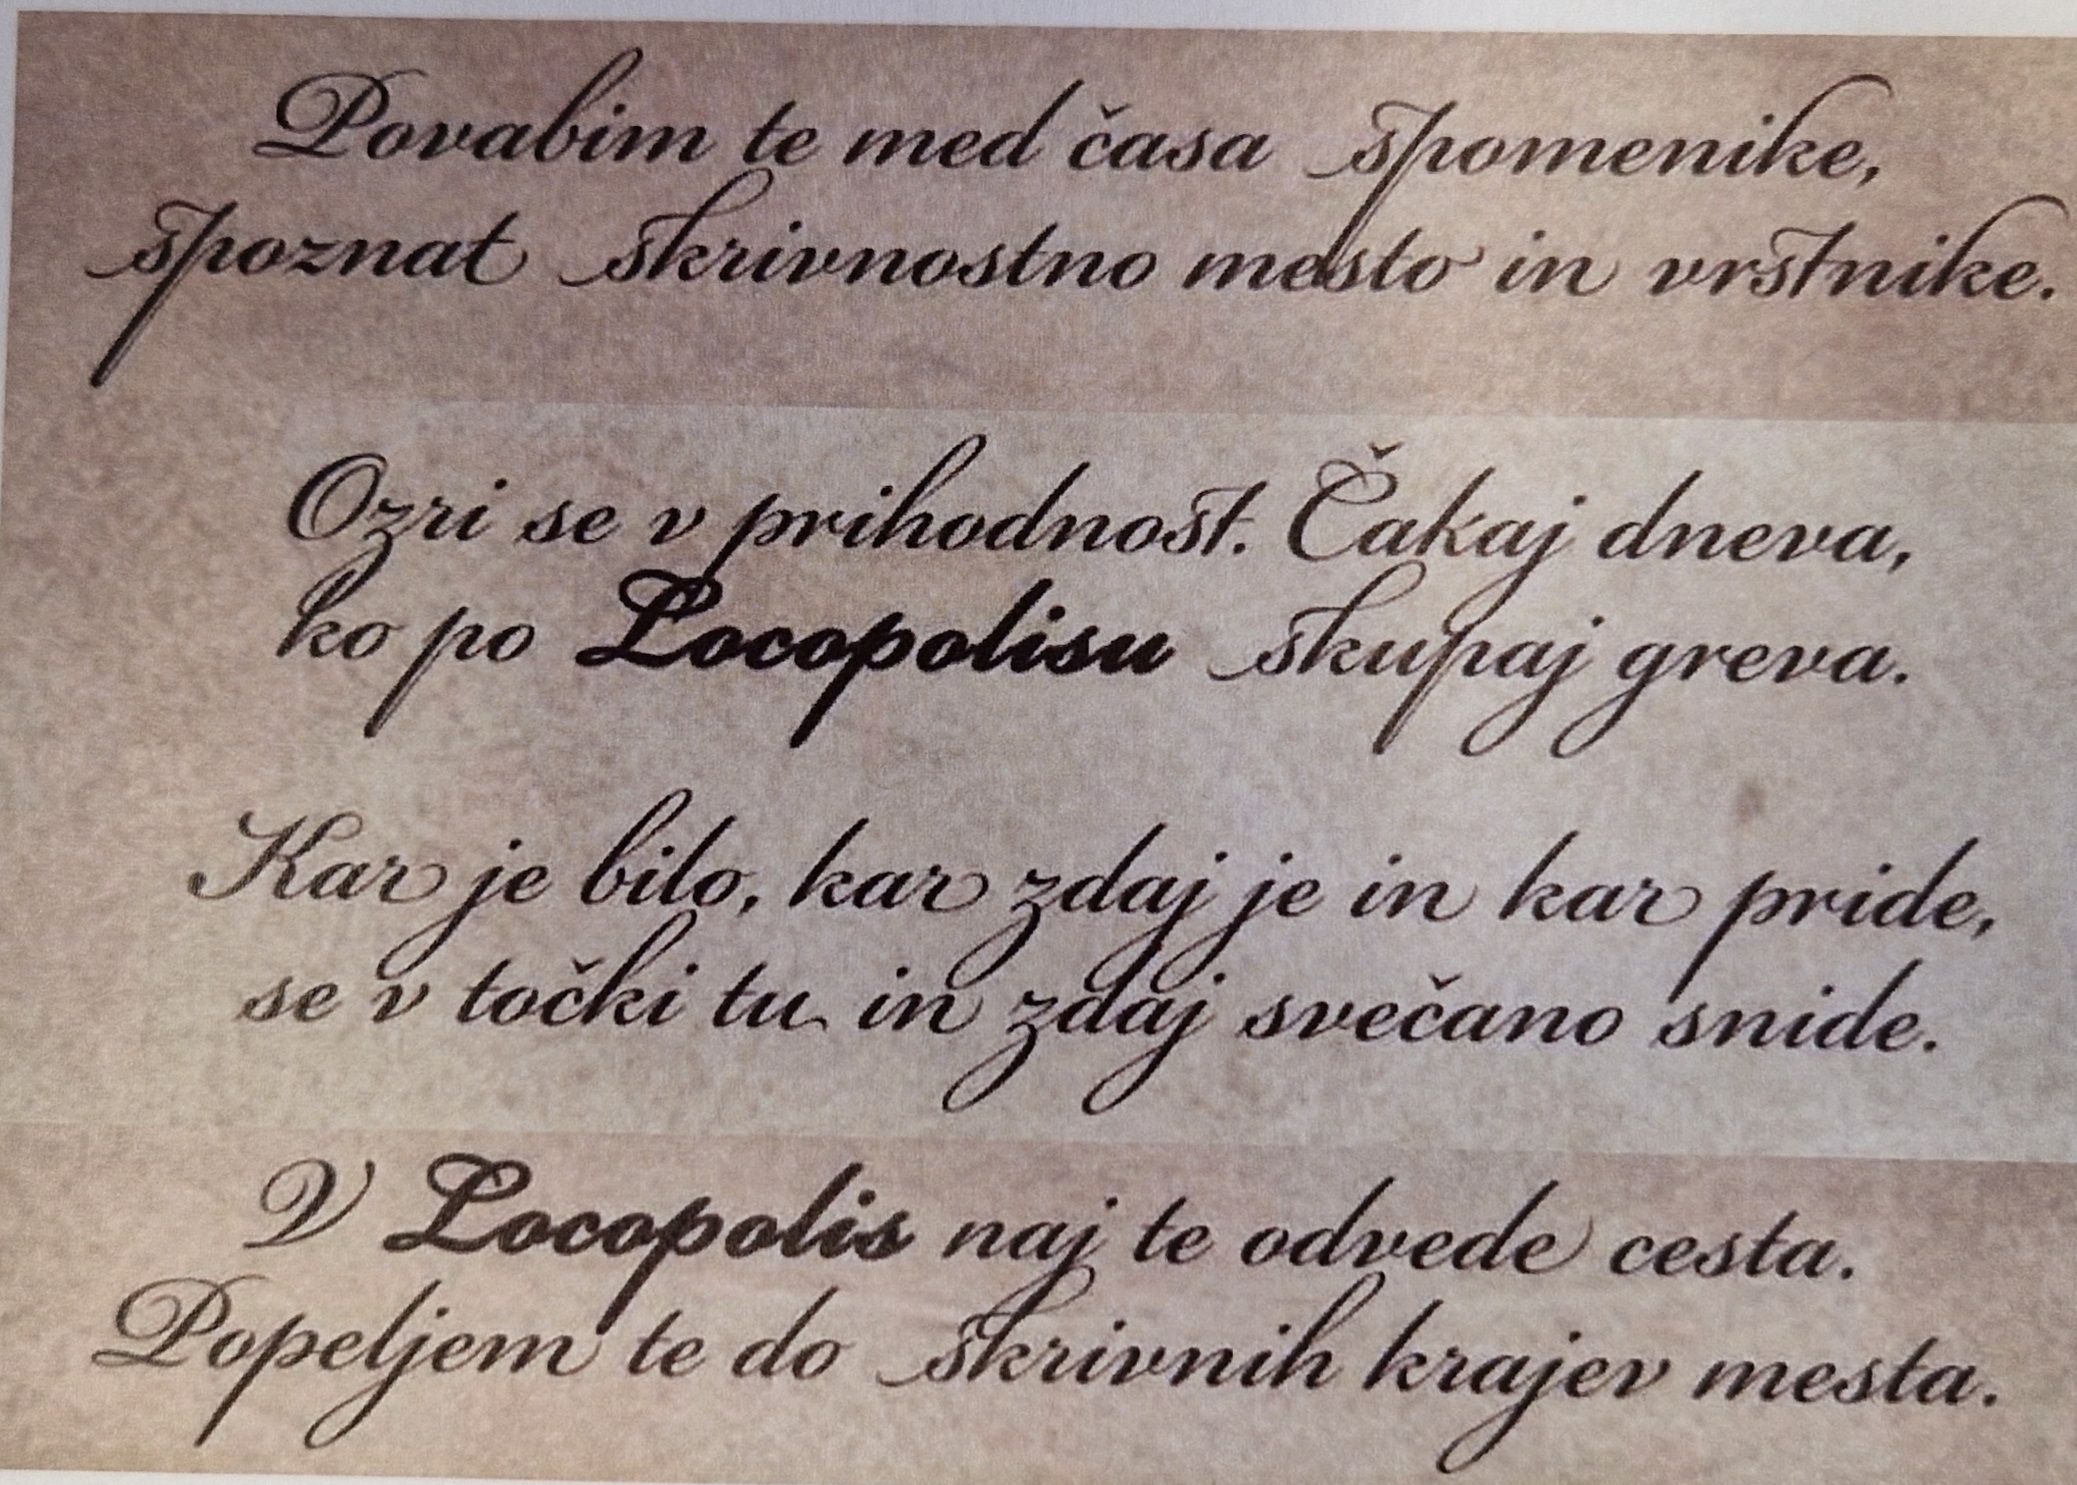 Povabim te med časa spomenike,
spoznat skrivnostno mesto in vrstnike.
Ozri se v prihodnost. Čakaj dneva,
ko po Locopolisu skupaj greva.
Kar je bilo, kar zdaj je in kar pride,
se v točki tu in zdaj svečano snide.
V Locopolis naj te odvede cesta.
Popeljem te do skrivnih krajev mesta.